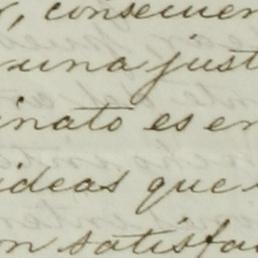 , consecuen
una just
inato es en
ideas que
on satisfac